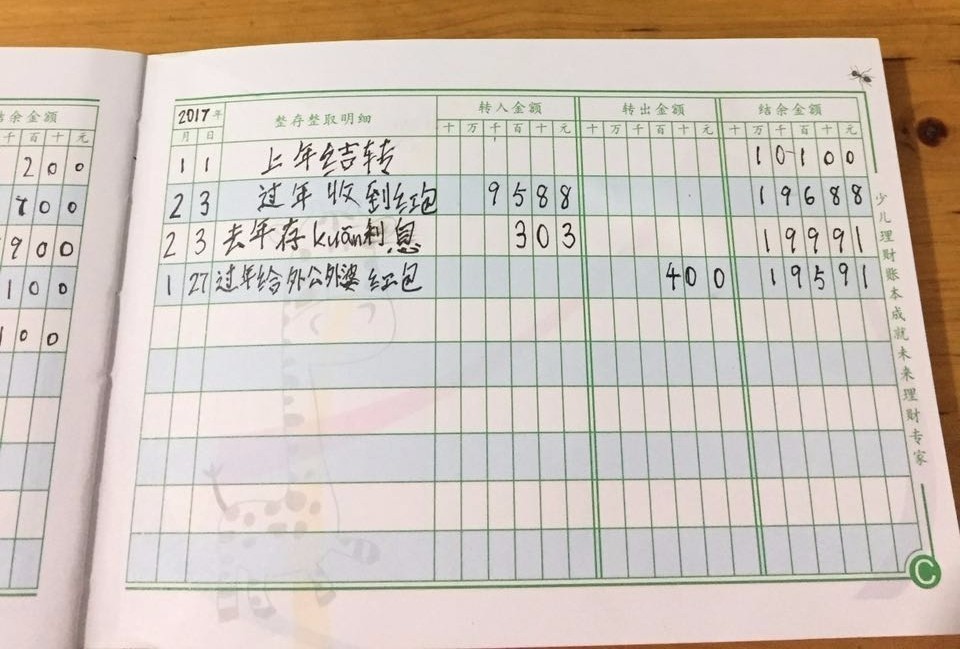 结余金额
千 百 十 元
2 0 0
7 0 0
9 0 0
1 0 0
1 0 0
2017年 整存整取明细 转入金额 转出金额 结余金额
月 日 十 万 千 百 十 元 十 万 千 百 十 元 十 万 千 百 十 元
1 1 上年结转 1 0 1 0 0
2 3 过年收到红包 9 5 8 8 1 9 6 8 8
2 3 去年存kuǎn利息 3 0 3 1 9 9 9 1
1 27 过年给外公外婆红包 4 0 0 1 9 5 9 1
少儿理财账本成就未来理财专家
C